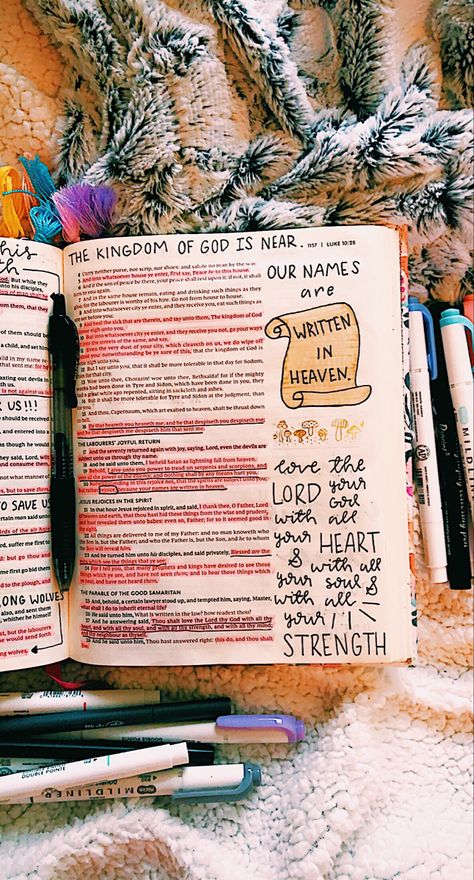 THE KINGDOM OF GOD IS NEAR. 1157 | LUKE 10:28
4 Carry neither purse, nor scrip, nor shoes: and salute no man by the way.
5 And into whatsoever house ye enter, first say, Peace be to this house.
6 And if the son of peace be there, your peace shall rest upon it: if not, it shall
to you again.
7 And in the same house remain, eating and drinking such things as they
labourer is worthy of his hire. Go not from house to house.
8 And into whatsoever city ye enter, and they receive you, eat such things as
set before you:
9 And heal the sick that are therein, and say unto them, The kingdom of God
come nigh unto you.
10 But into whatsoever city ye enter, and they receive you not, go your ways
the streets of the same, and say,
11 Even the very dust of your city, which cleaveth on us, we do wipe off
notwithstanding be ye sure of this, that the kingdom of God is
nigh unto you.
12 But I say unto you, that it shall be more tolerable in that day for Sodom,
for that city.
13 Woe unto thee, Chorazin! woe unto thee, Bethsaida! for if the mighty
works had been done in Tyre and Sidon, which have been done in you, they
had a great while ago repented, sitting in sackcloth and ashes.
14 But it shall be more tolerable for Tyre and Sidon at the judgment, than
for you.
15 And thou, Capernaum, which art exalted to heaven, shalt be thrust down
to hell.
16 He that heareth you heareth me; and he that despiseth you despiseth me;
and he that despiseth me despiseth him that sent me.
THE LABOURERS' JOYFUL RETURN
17 And the seventy returned again with joy, saying, Lord, even the devils
are subject unto us through thy name.
18 And he said unto them, I beheld Satan as lightning fall from heaven.
19 Behold, I give unto you power to tread on serpents and scorpions, and
over all the power of the enemy: and nothing shall by any means hurt you.
20 Notwithstanding in this rejoice not, that the spirits are subject unto you;
but rather rejoice, because your names are written in heaven.
JESUS REJOICES IN THE SPIRIT
21 In that hour Jesus rejoiced in spirit, and said, I thank thee, O Father, Lord
of heaven and earth, that thou hast hid these things from the wise and prudent,
and hast revealed them unto babes: even so, Father; for so it seemed good in
thy sight.
22 All things are delivered to me of my Father: and no man knoweth who
the Son is, but the Father; and who the Father is, but the Son, and he to whom
the Son will reveal him.
23 And he turned him unto his disciples, and said privately, Blessed are the
eyes which see the things that ye see:
24 For I tell you, that many prophets and kings have desired to see those
things which ye see, and have not seen them; and to hear those things which
ye hear, and have not heard them.
THE PARABLE OF THE GOOD SAMARITAN
25 And, behold, a certain lawyer stood up, and tempted him, saying, Master,
what shall I do to inherit eternal life?
26 He said unto him, What is written in the law? how readest thou?
27 And he answering said, Thou shalt love the Lord thy God with all thy
heart, and with all thy soul, and with all thy strength, and with all thy mind;
and thy neighbour as thyself.
28 And he said unto him, Thou hast answered right: this do, and thou shalt
OUR NAMES
are
WRITTEN
IN
HEAVEN.
love the
LORD your
God
with all
your HEART
& with all
your soul &
with all
your
STRENGTH
US!!!
TO SAVE US
LONG WOLVES
MILDLINER